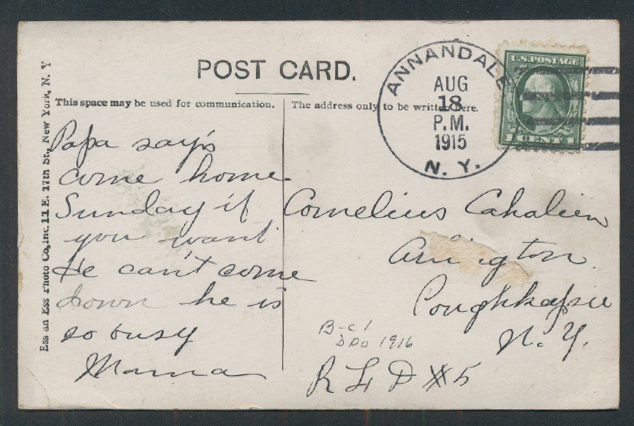 POST CARD.
This space may be used for communication.
The address only to be written here.
Ess an Ess Photo Co., Inc. 11 E. 17th St., New York, N. Y
ANNANDALE
AUG
18
P.M.
1915
N. Y.
U.S. POSTAGE
Papa say's
come home
Sunday if
you want
He can't come
down he is
so busy
Mama
Cornelius
Arlington
Poughkepsie
N. Y.
R F D #5
B-c1
DPO 1916